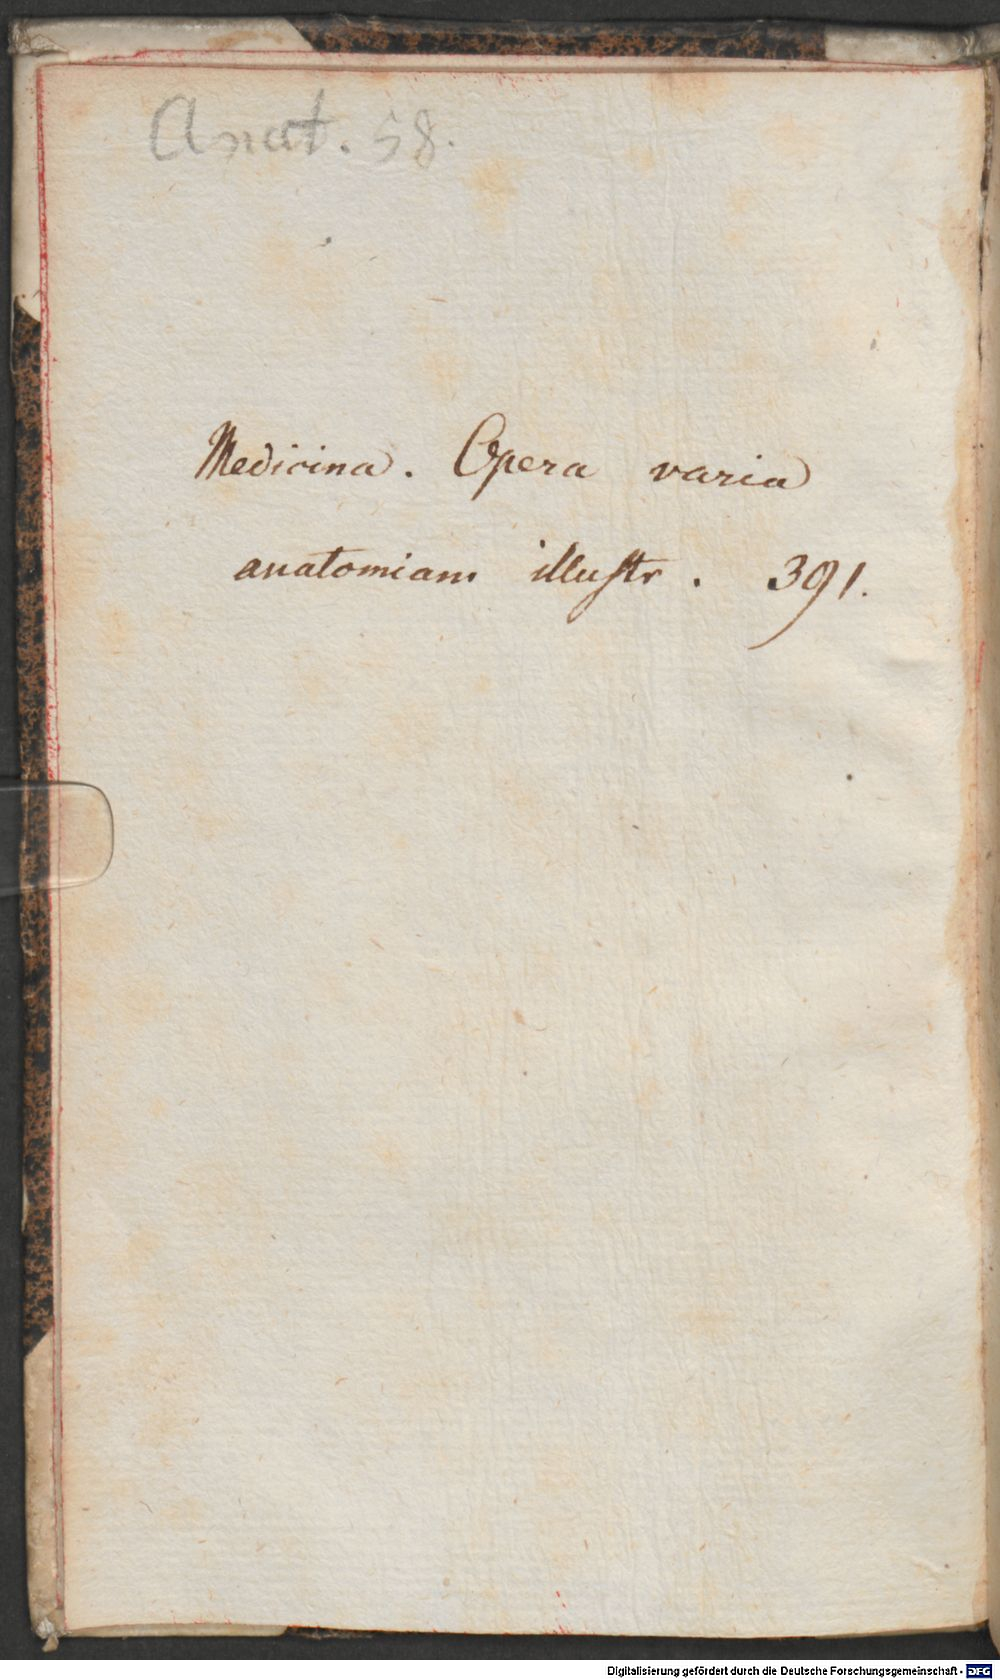 Anat. 58.
Medicina. Opera varia
anatomiam illustr. 391.
Digitalisierung gefördert durch die Deutsche Forschungsgemeinschaft - DFG